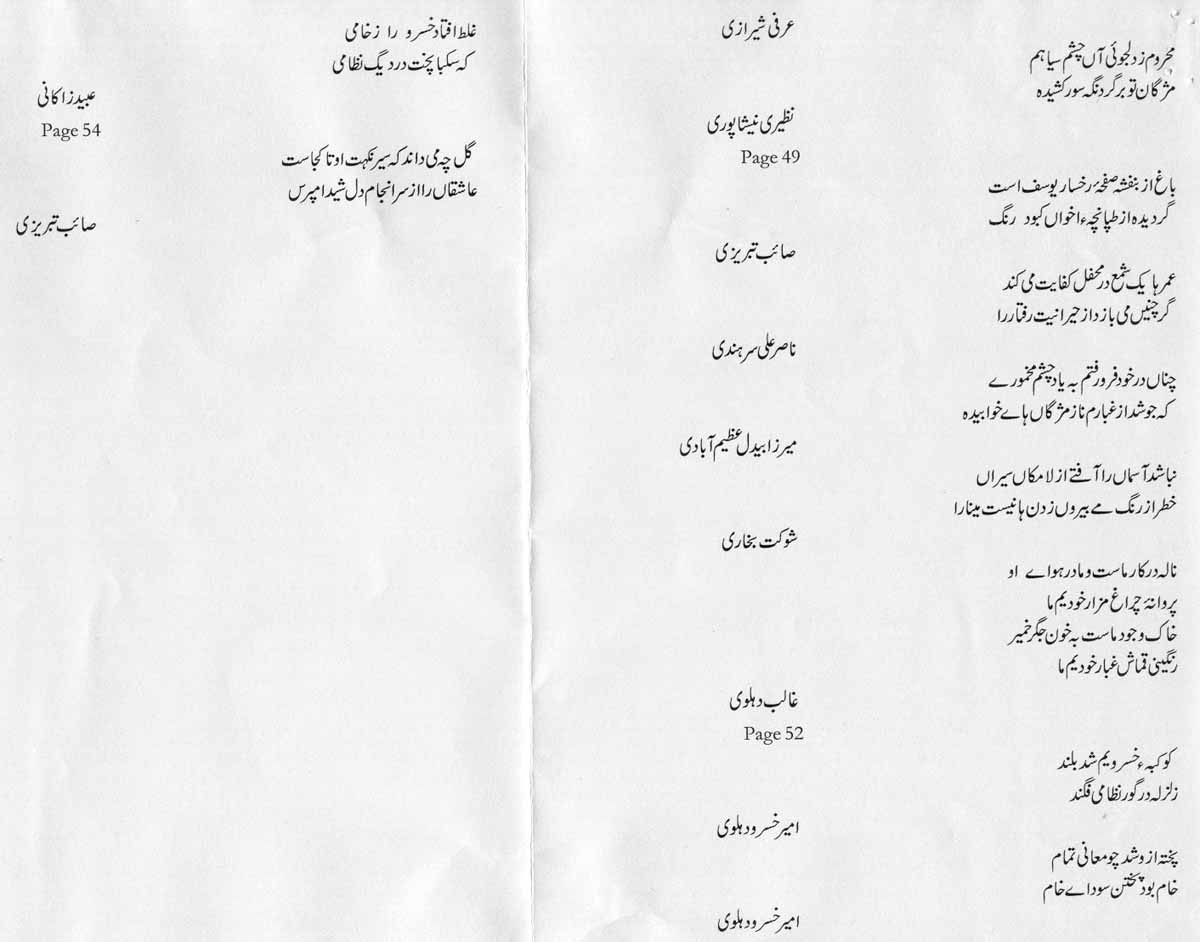 عرفی شیرازی
محروم ز دلجوئی آں چشم سیاہم
مژگان تو بر گرد نگہ سور کشیدہ
نظیری نیشاپوری
Page 49
باغ از بنفشہ صفحۂ رخسار یوسف است
گردیدہ از طپانچہء اخواں کبود رنگ
صائب تبریزی
عمرہا یک شمع در محفل کفایت می کند
گر چنیں می بازد از حیرانیت رفتار را
ناصر علی سرہندی
چناں در خود فرو رفتم بہ یاد چشم مخمورے
کہ جوشد از غبارم ناز مژگاں ہاے خوابیدہ
میرزا بیدل عظیم آبادی
نباشد آسماں را آفتے از لامکاں سیراں
خطر از رنگ مے بیروں زدن ہا نیست مینا را
شوکت بخاری
نالہ در کار ماست و ما در ہواے او
پروانۂ چراغ مزار خودیم ما
خاک وجود ماست بہ خون جگر خمیر
رنگینی قماش غبار خودیم ما
غالب دہلوی
Page 52
کوکبہء خسرویم شد بلند
زلزلہ در گور نظامی فگند
امیر خسرو دہلوی
پختہ ازو شد چو معانی تمام
خام بود پختن سوداے خام
امیر خسرو دہلوی
غلط افتاد خسرو را ز خامی
کہ سکبا پخت در دیگ نظامی
عبید زاکانی
Page 54
گل چہ می داند کہ سیر نکہت او تا کجاست
عاشقاں را از سرانجام دل شیدا مپرس
صائب تبریزی